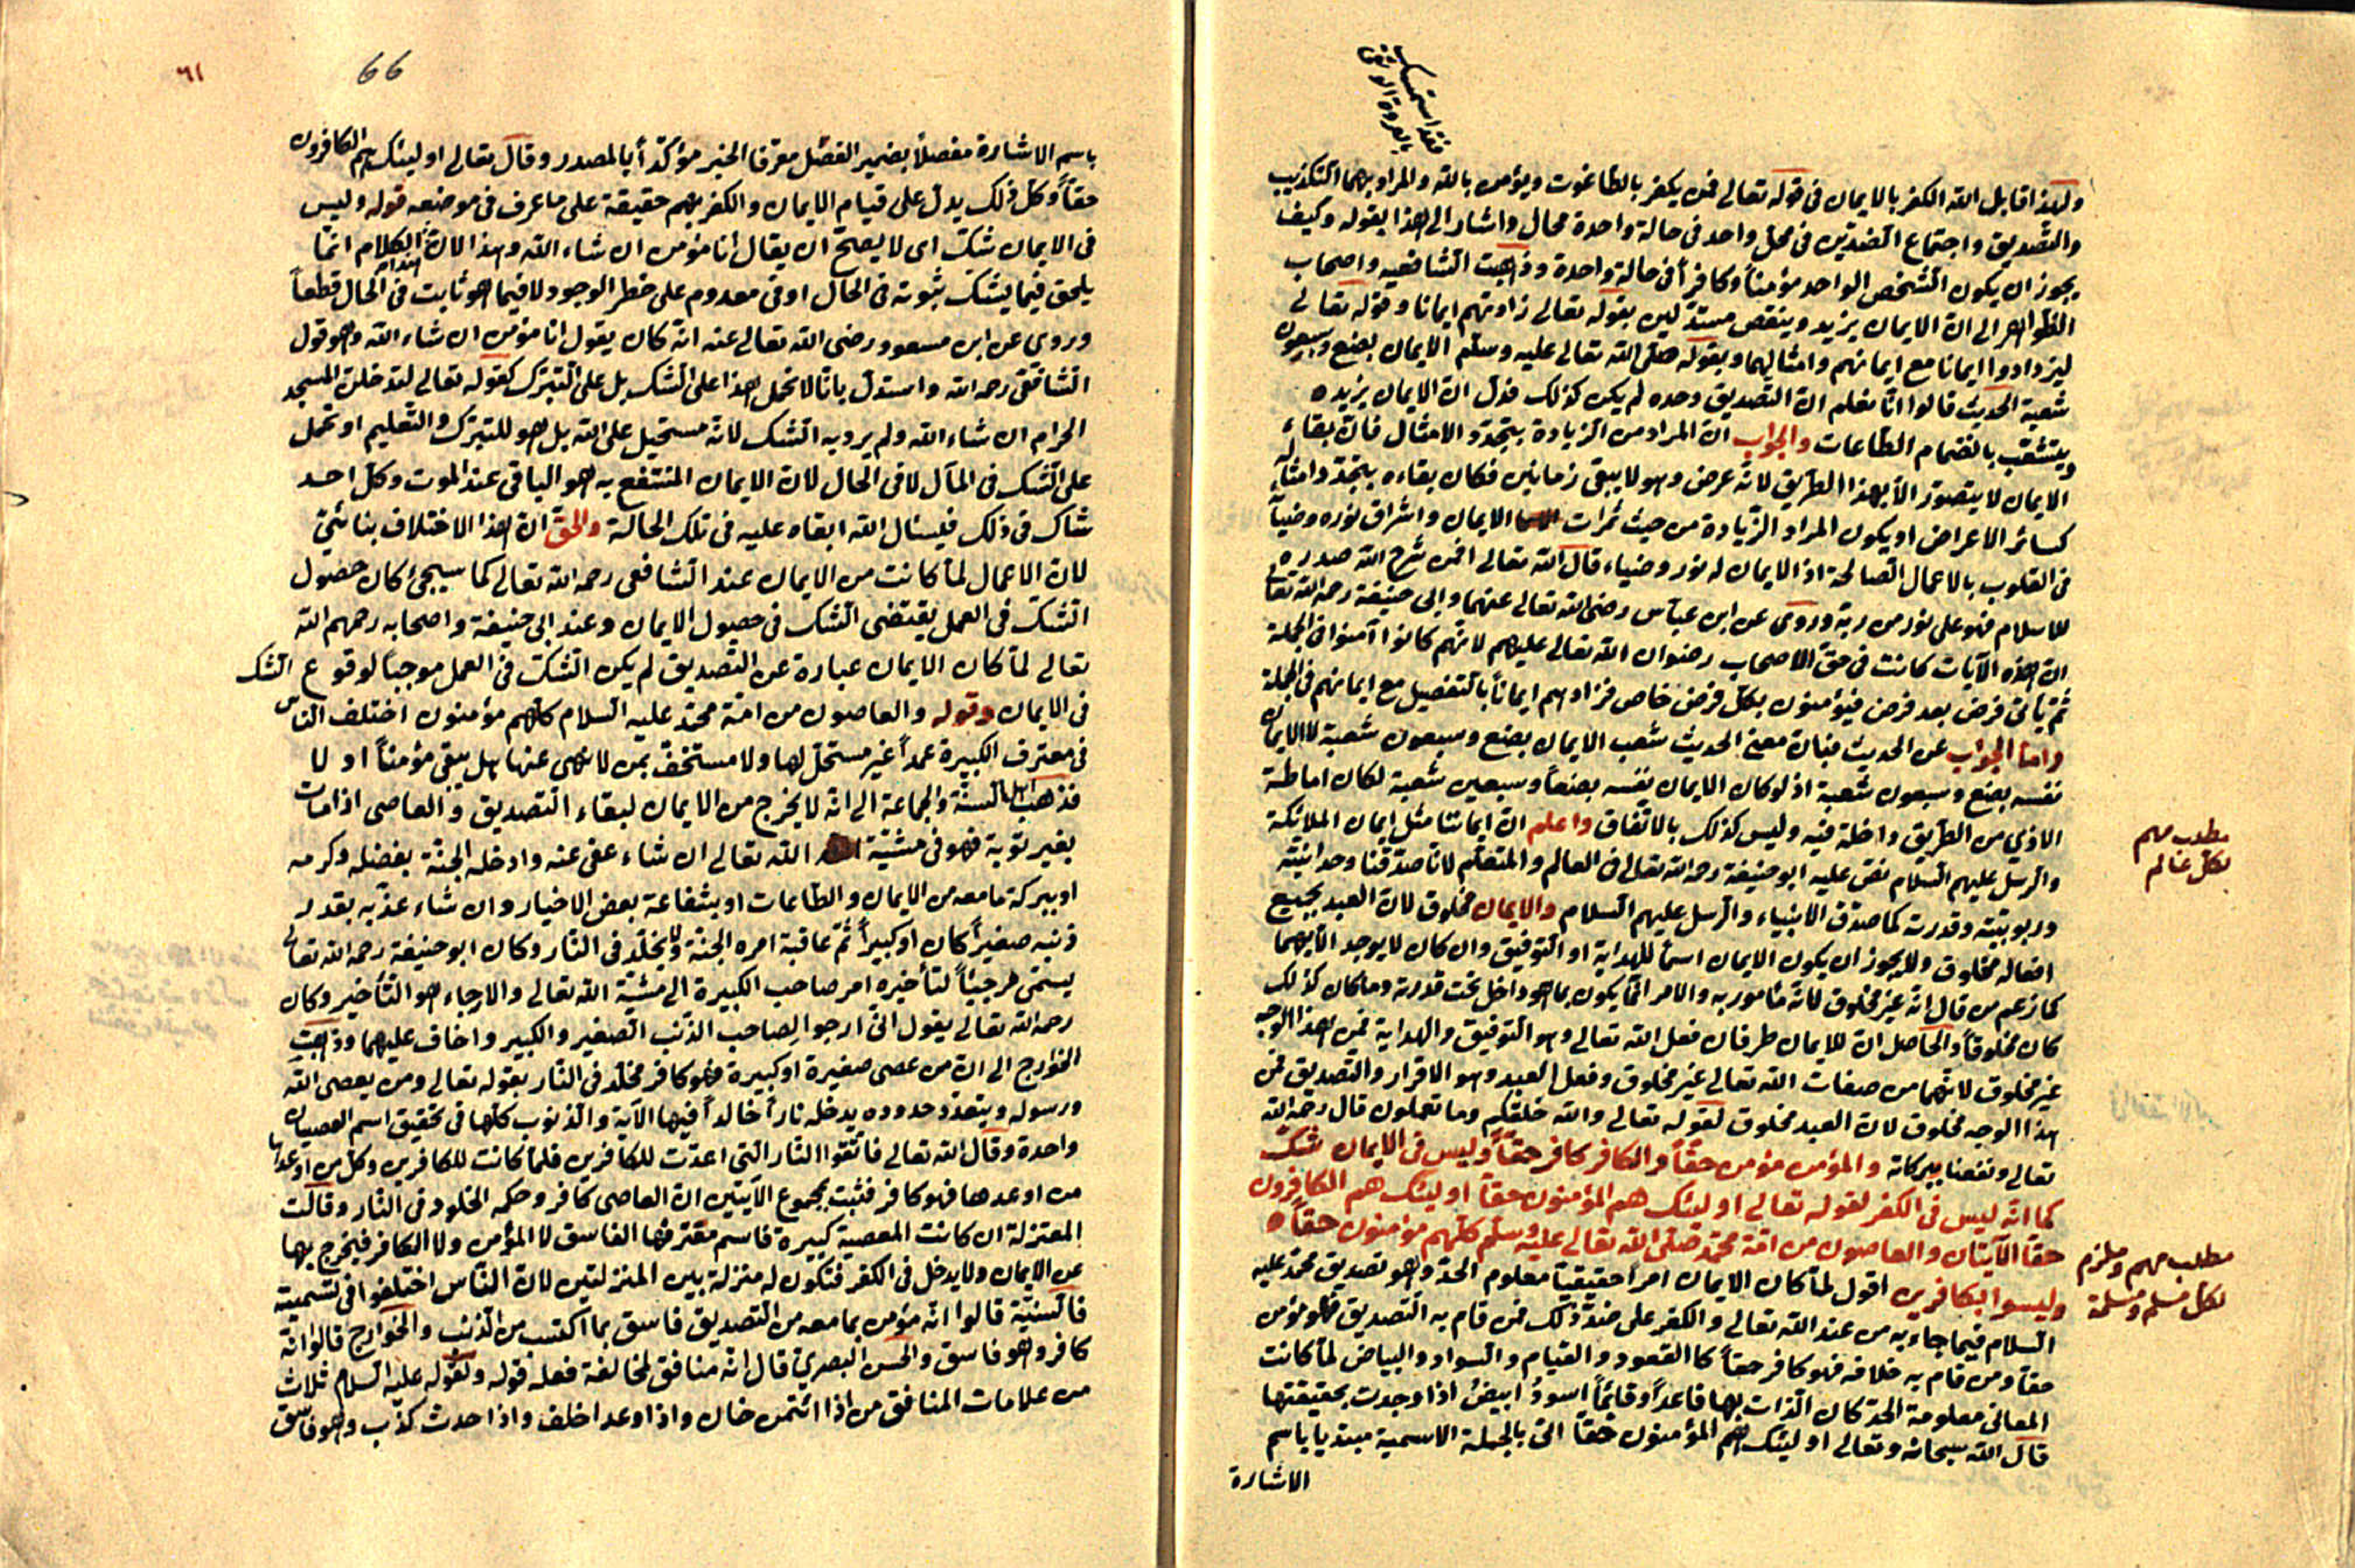 فقد استمسك
بالعروة الوثقى
ولهذا قابل الله الكفر بالايمان فى قوله تعالى فمن يكفر بالطاغوت ويؤمن بالله والمراد بهما التكذيب
والتصديق واجتماع الضدين فى محل واحد فى حالة واحدة محال واشار الى هذا بقوله وكيف
يجوز ان يكون الشخص الواحد مؤمناً وكافراً فى حالة واحدة وذهبت الشافعيه واصحاب
الظواهر الى ان الايمان يزيد وينقص مستدلين بقوله تعالى زادتهم ايمانا وقوله تعالى
ليزدادوا ايمانا مع ايمانهم وامثالهما وبقوله صلى الله تعالى عليه وسلم الايمان بضع وسبعون
شعبة الحديث قالوا انا نعلم ان التصديق وحده لم يكن كذلك فدل ان الايمان يزيده
ويتشعب بانضمام الطاعات والجواب ان المراد من الزيادة بتجدد الامثال فان بقاء
الايمان لا يتصور الا بهذا الطريق لانه عرض وهو لا يبقى زمانين فكان بقاءه بتجدد امثاله
كسائر الاعراض او يكون المراد الزيادة من حيث ثمرات الايمان واشراق نوره وضيآ
فى القلوب بالاعمال الصالحة اذ الايمان له نور وضياء قال الله تعالى افمن شرح الله صدره
للاسلام فهو على نور من ربه وروى عن ابن عباس رضى الله تعالى عنهما وابى حنيفة رحمه الله تعالى
ان هذه الآيات كانت فى حق الاصحاب رضوان الله تعالى عليهم لانهم كانوا آمنوا فى الجملة
ثم يأتى فرض بعد فرض فيؤمنون بكل فرض خاص فزادهم ايماناً بالتفصيل مع ايمانهم فى الجملة
واما الجواب عن الحديث فبان معنى الحديث شعب الايمان بضع وسبعون شعبة لا الايمان
نفسه بضع وسبعون شعبة اذ لو كان الايمان نفسه بضعاً وسبعين شعبة لكان اماطة
الاذى من الطريق داخلة فيه وليس كذلك بالاتفاق واعلم ان ايماننا مثل ايمان الملائكة
والرسل عليهم السلام نص عليه ابو حنيفة رحمه الله تعالى فى العالم والمتعلم لانا صدقنا وحدانيته
وربوبيته وقدرته كما صدق الانبياء والرسل عليهم السلام والايمان مخلوق لان العبد بجميع
افعاله مخلوق ولا يجوز ان يكون الايمان اسماً للهداية او التوفيق وان كان لا يوجد الا بهما
كما زعم من قال انه غير مخلوق لانه مأمور به والامر انما يكون بما هو داخل تحت قدرته وما كان كذلك
كان مخلوقاً والحاصل ان للايمان طرفان فعل الله تعالى وهو التوفيق والهداية فمن هذا الوجه
غير مخلوق لانهما من صفات الله تعالى غير مخلوق وفعل العبد وهو الاقرار والتصديق فمن
هذا الوجه مخلوق لان العبد مخلوق لقوله تعالى والله خلقكم وما تعملون قال رحمه الله
تعالى ونفعنا ببركاته والمؤمن مؤمن حقاً والكافر كافر حقاً وليس فى الايمان شك
كما انه ليس فى الكفر لقوله تعالى اولئك هم المؤمنون حقا اولئك هم الكافرون
حقا الآيتان والعاصون من امة محمد صلى الله تعالى عليه وسلم كلهم مؤمنون حقاً
وليسوا بكافرين اقول لما كان الايمان امراً حقيقياً معلوم الحد وهو تصديق محمد عليه
السلام فيما جاء به من عند الله تعالى والكفر على ضد ذلك فمن قام به التصديق فهو مؤمن
حقا ومن قام به خلافه فهو كافر حقاً كالقعود والقيام والسواد والبياض لما كانت
المعانى معلومة الحد كان الذات بها قاعداً وقائماً اسود ابيض اذا وجدت بحقيقتها
قال الله سبحانه وتعالى اولئك هم المؤمنون حقاً اتى بالجملة الاسمية مبتديا باسم
الاشارة
مطلب مهم
لكل عالم
مطلب مهم وملزم
لكل مسلم ومسلمة
٦١
66
باسم الاشارة مفصلاً بضمير الفصل معرفا الخبر مؤكداً بالمصدر وقال تعالى اولئك هم الكافرون
حقاً وكل ذلك يدل على قيام الايمان والكفر بهم حقيقة على ما عرف فى موضعه قوله وليس
فى الايمان شك اى لا يصح ان يقال انا مؤمن ان شاء الله وهذا لان الكلام انما
يلحق فيما يشك ثبوته فى الحال او فى معدوم على خطر الوجود لا فيما هو ثابت فى الحال قطعاً
وروى عن ابن مسعود رضى الله تعالى عنه انه كان يقول انا مؤمن ان شاء الله وهو قول
الشافعى رحمه الله واستدل بانا لا نحمل هذا على الشك بل على التبرك كقوله تعالى لتدخلن المسجد
الحرام ان شاء الله ولم يرد به الشك لانه مستحيل على الله بل هو للتبرك والتعليم او نحمل
على الشك فى المآل لا فى الحال لان الايمان المنتفع به هو الباقى عند الموت وكل احد
شاك فى ذلك فيسئال الله ابقاه عليه فى تلك الحالة والحق ان هذا الاختلاف بنائى
لان الاعمال لما كانت من الايمان عند الشافعى رحمه الله تعالى كما سيجئ كان حصول
الشك فى العمل يقتضى الشك فى حصول الايمان وعند ابى حنيفة واصحابه رحمهم الله
تعالى لما كان الايمان عبارة عن التصديق لم يكن الشك فى العمل موجباً لوقوع الشك
فى الايمان وقوله والعاصون من امة محمد عليه السلام كلهم مؤمنون اختلف الناس
فى مقترف الكبيرة عمداً غير مستحل لها ولا مستخف بمن لا نهى عنها هل يبقى مؤمناً او لا
فذهب اهل السنة والجماعة الى انه لا يخرج من الايمان لبقاء التصديق والعاصى اذا مات
بغير توبة فهو فى مشية الله تعالى ان شاء عفى عنه وادخله الجنة بفضله وكرمه
او ببركة ما معه من الايمان والطاعات او بشفاعة بعض الاخيار وان شاء عذبه بقدر
ذنبه صغيراً كان او كبيراً ثم عاقبة امره الجنة ولا يخلد فى النار وكان ابو حنيفة رحمه الله تعالى
يسمى مرجئاً لتأخيره امر صاحب الكبيرة الى مشية الله تعالى والارجاء هو التأخير وكان
رحمه الله تعالى يقول انى ارجوا لصاحب الذنب الصغير والكبير واخاف عليهما وذهبت
الخوارج الى ان من عصى صغيرة او كبيرة فهو كافر مخلد فى النار بقوله تعالى ومن يعصى الله
ورسوله ويتعد حدوده يدخله ناراً خالداً فيها الآية والذنوب كلها فى تحقيق اسم العصيان
واحدة وقال الله تعالى فاتقوا النار التى اعدت للكافرين فلما كانت للكافرين وكل من اوعدها
من اوعدها فهو كافر فثبت بمجموع الآيتين ان العاصى كافر وحكمه الخلود فى النار وقالت
المعتزلة ان كانت المعصية كبيرة فاسم مقترفها الفاسق لا المؤمن ولا الكافر فيخرج بها
عن الايمان ولا يدخل فى الكفر فتكون له منزلة بين المنزلتين لان الناس اختلفوا فى تسميته
فالسنية قالوا انه مؤمن بما معه من التصديق فاسق بما اكتسب من الذنب والخوارج قالوا انه
كافر وهو فاسق والحسن البصرى قال انه منافق لمخالفة فعله قوله ولقوله عليه السلام ثلاث
من علامات المنافق من اذا ائتمن خان واذا وعد اخلف واذا حدث كذب وهو فاسق